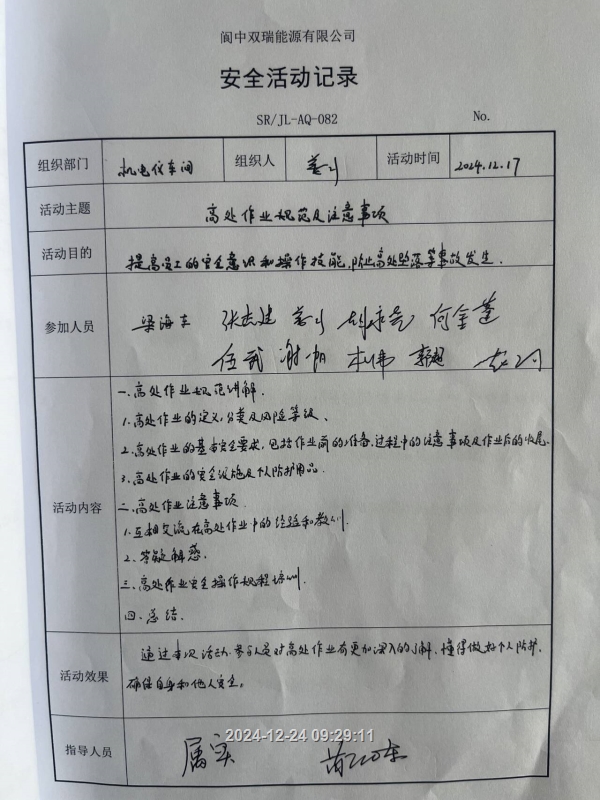 阆中双瑞能源有限公司
安全活动记录
SR/JL-AQ-082 No.
组织部门 机电仪车间 组织人 活动时间 2024.12.17
活动主题 高处作业规范及注意事项
活动目的 提高员工的安全意识和操作技能,防止高处坠落等事故发生.
参加人员 梁海 张志建 胡 何金莲
伍武 谢帅 李伟 郭超
活动内容
一.高处作业规范讲解.
1.高处作业的定义,分类及风险等级、
2.高处作业的基本安全要求,包括作业前的准备.过程中的注意事项及作业后的收尾.
3.高处作业的安全设施及个人防护用品.
二.高处作业注意事项
1.互相交流在高处作业中的经验和教训.
2.答疑解惑.
三.高处作业安全操作规程培训.
四.总结.
活动效果 通过本次活动.参与人员对高处作业有更加深入的了解.懂得做好个人防护.
确保自身和他人安全。
2024-12-24 09:29:11
指导人员 属实